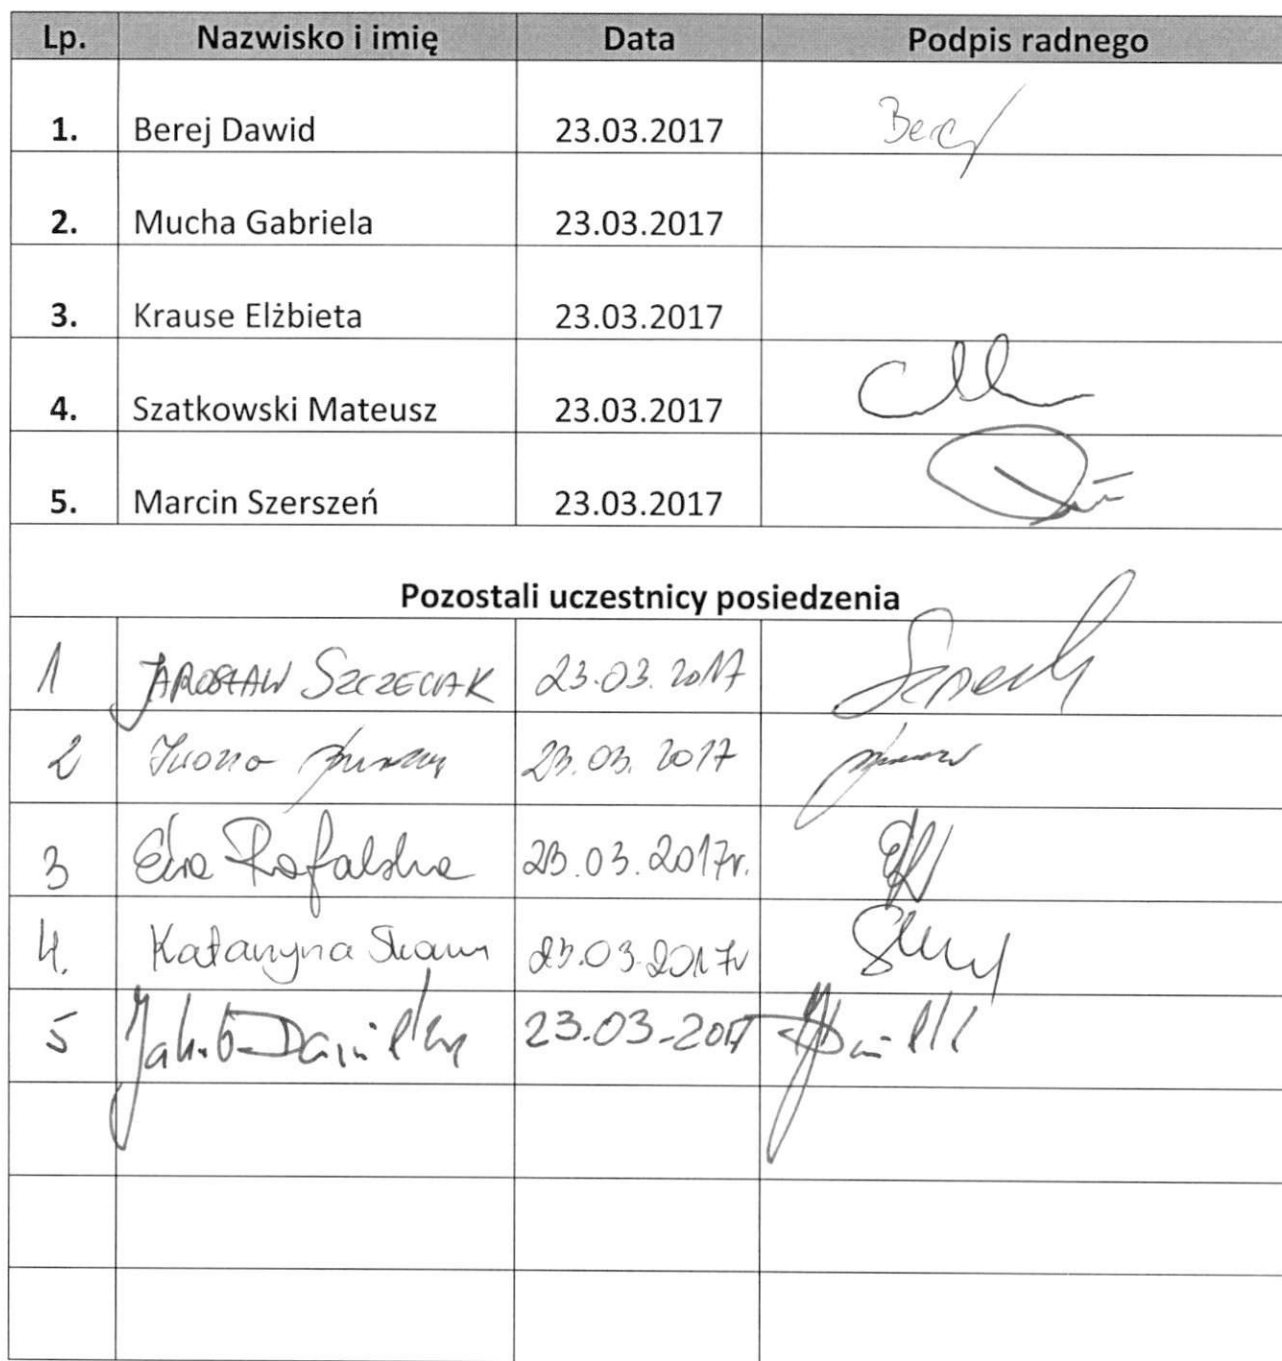 Lp. Nazwisko i imię Data Podpis radnego
1. Berej Dawid 23.03.2017 Berej
2. Mucha Gabriela 23.03.2017
3. Krause Elżbieta 23.03.2017
4. Szatkowski Mateusz 23.03.2017
5. Marcin Szerszeń 23.03.2017
Pozostali uczestnicy posiedzenia
1 JAROSŁAW SZCZECIAK 23.03.2017
2 Iwona 23.03.2017
3 Ewa Rafalska 23.03.2017r.
4. Katarzyna 23.03.2017r
5 Jakub 23.03-2017